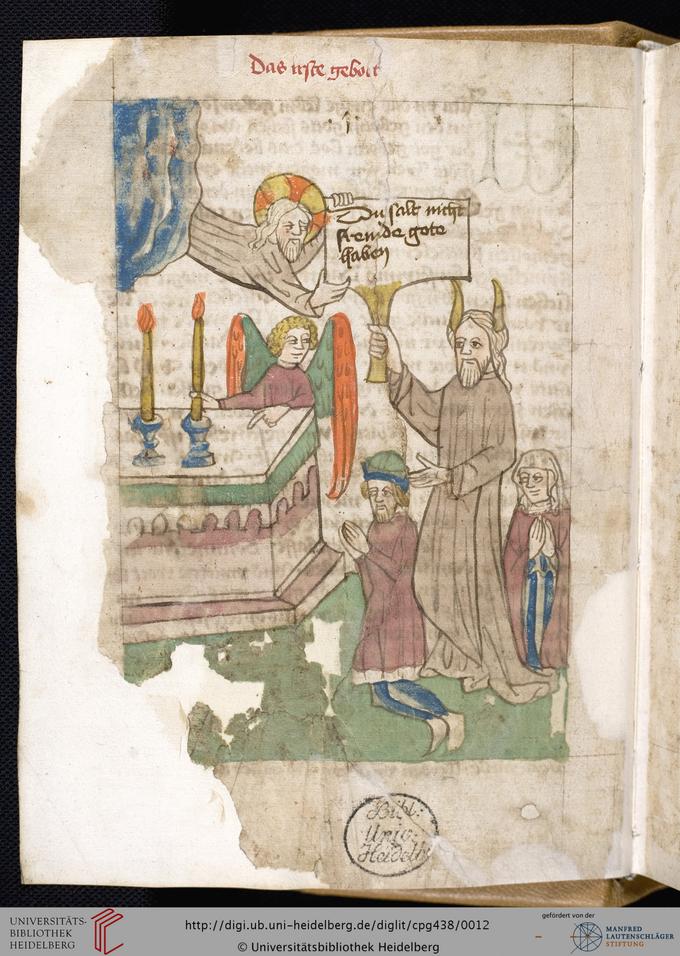 Das erste gebott
Du salt nicht
fremde gote
haben
Bibl:
Univ:
Heidelb
UNIVERSITÄTS-
BIBLIOTHEK
HEIDELBERG
http://digi.ub.uni-heidelberg.de/diglit/cpg438/0012
© Universitätsbibliothek Heidelberg
gefördert von der
MANFRED
LAUTENSCHLÄGER
STIFTUNG